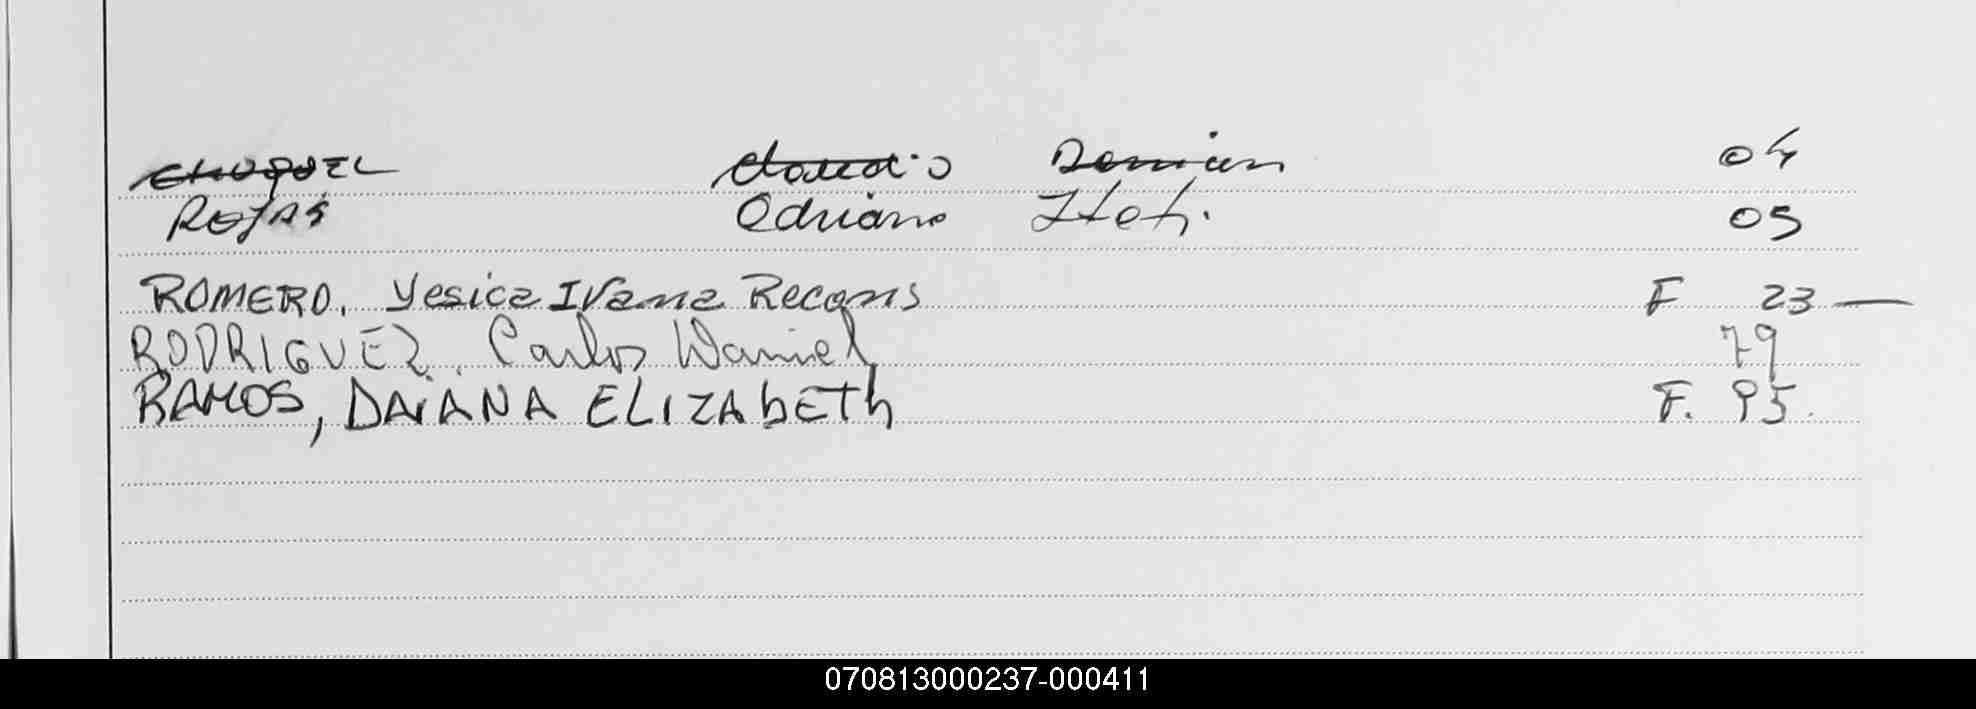 CHUQUEL Claudio Damian 04
ROJAS Adriano 05
ROMERO, Yesica Ivana Recons F 23 —
RODRIGUEZ, Carlos Daniel 79
RAMOS, DAIANA ELIZAbETh F. 95.
070813000237-000411